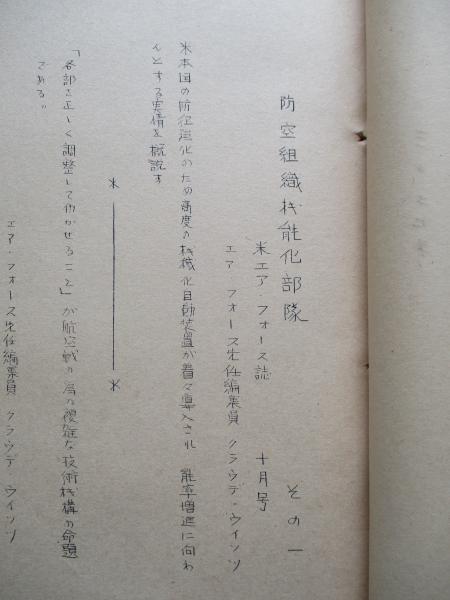 防空組織機能化部隊 その一
米エア・フォース誌 十月号
エア フォース先任編集員 クラウデ・ウイッツ
米本国の防衛強化のため高度の機械化自動装置が着々導入され 能率増進に向わ
んとする実情を概説す
「各部を正しく調整して仂かせること」が航空戦の 複雑な技術機構の命題
である。
エア・フォース先任編集員 クラウデ・ウイッツ